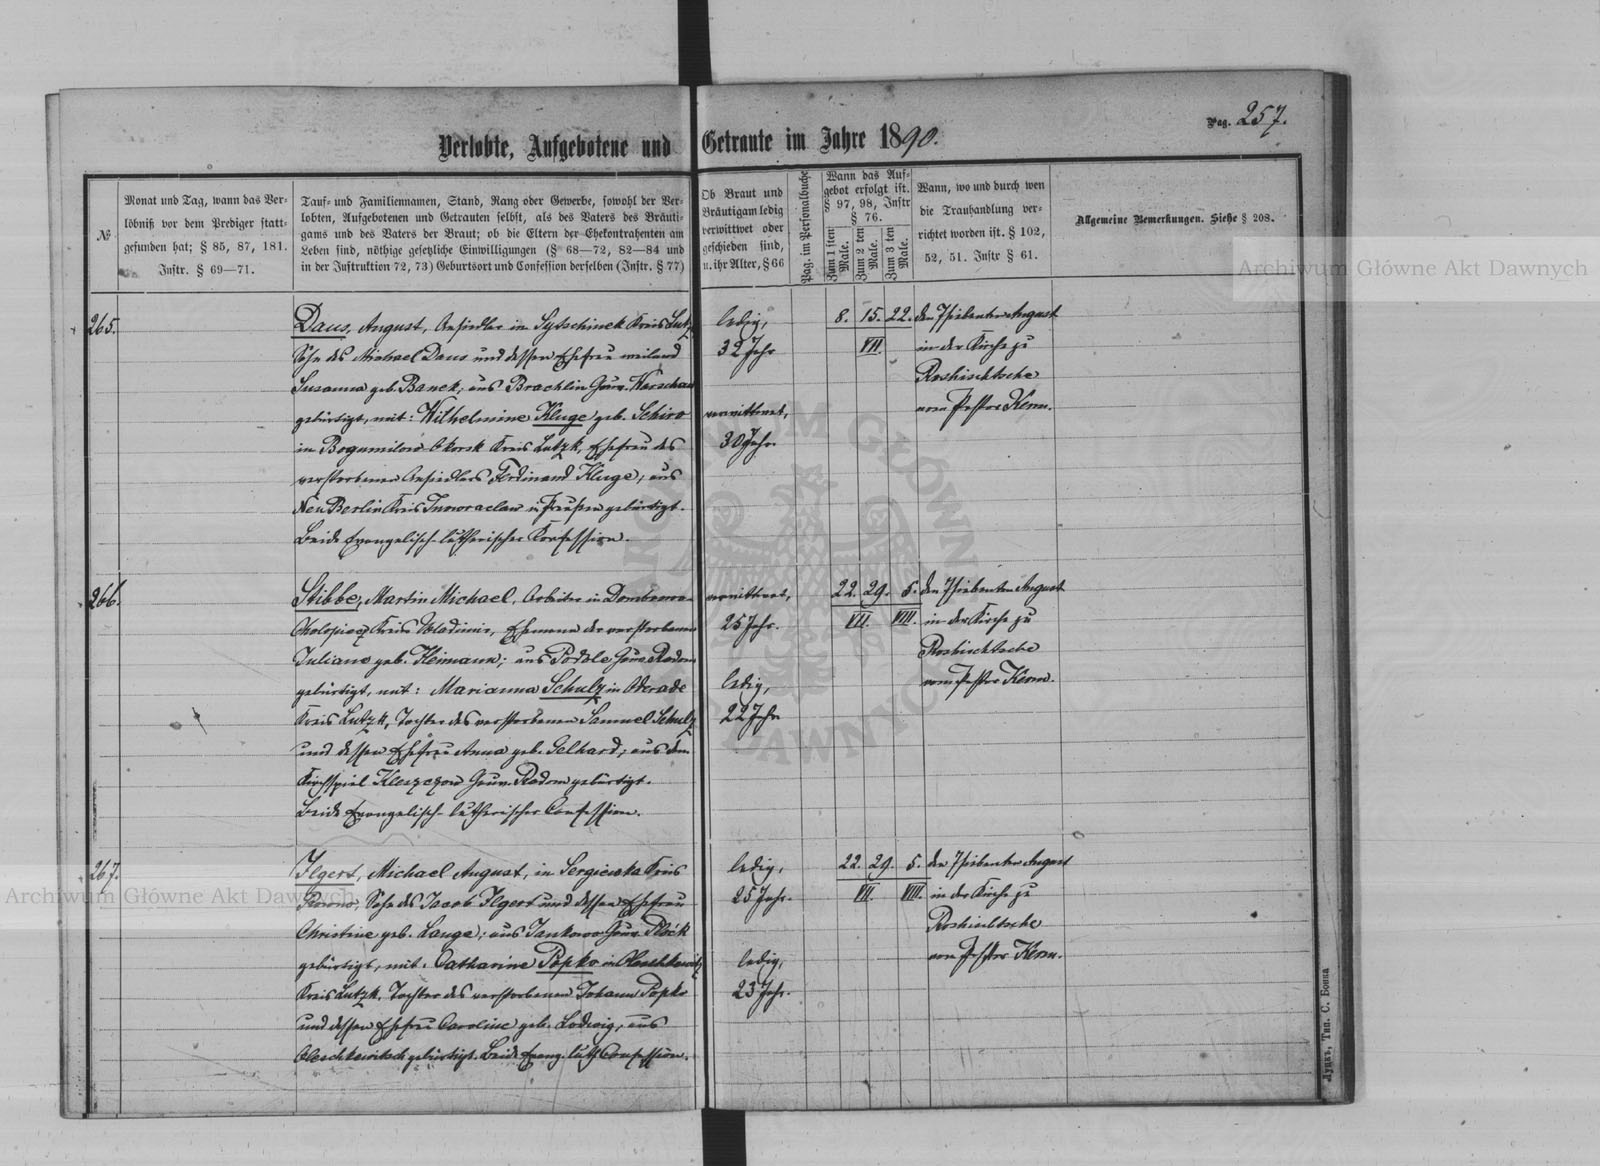 Pag. 257.
Verlobte, Aufgebotene und Getraute im Jahre 1890.
№
Monat und Tag, wann das Ver-
löbniß vor dem Prediger statt-
gefunden hat; § 85, 87, 181.
Instr. § 69—71.
Tauf- und Familiennamen, Stand, Rang oder Gewerbe, sowohl der Ver-
lobten, Aufgebotenen und Getrauten selbst, als des Vaters des Bräuti-
gams und des Vaters der Braut; ob die Eltern der Ehekontrahenten am
Leben sind, nöthige gesetzliche Einwilligungen (§ 68—72, 82—84 und
in der Instruktion 72, 73) Geburtsort und Confession derselben (Instr. § 77)
Ob Braut und
Bräutigam ledig
verwittwet oder
geschieden sind,
u. ihr Alter, § 66
Pag. im Personalbuche
Wann das Auf-
gebot erfolgt ist.
§ 97, 98, Instr
§ 76.
Zum 1 sten Male.
Zum 2 ten Male.
Zum 3 ten Male.
Wann, wo und durch wen
die Trauhandlung ver-
richtet worden ist. § 102,
52, 51. Instr § 61.
Allgemeine Bemerkungen. Siehe § 208.
265.
Daus, August, Ansiedler in Sytschinek Kreis Lutzk
Sohn des Michael Daus und dessen Ehefrau weiland
Susanna geb. Banek; aus Bracklin Gouv. Warschau
gebürtigt, mit: Wilhelmine Kluge geb. Schiro
in Bogumilow Okorsk Kreis Lutzk, Ehefrau des
verstorbenen Ansiedlers Ferdinand Kluge; aus
Neu Berlin Kreis Inowraclaw in Preußen gebürtigt.
Beide Evangelisch-lutherischer Konfession.
ledig,
32 Jahr
verwittwet,
30 Jahr.
8. 15. 22.
VII.
den 7 siebenten August
in der Kirche zu
Roshischtsche
vom Pastor Kerm.
266.
Stibbe, Martin Michael, Arbeiter in Dombrowa-
Cholopiecz Kreis Wladimir, Ehemann der verstorbenen
Juliane geb. Heimann; aus Podole Gouv. Radom
gebürtigt, mit: Marianna Schulz in Oderade
Kreis Lutzk, Tochter des verstorbenen Samuel Schulz
und dessen Ehefrau Anna geb. Gelhard; aus dem
Kirchspiel Kleszczow Gouv. Radom gebürtigt.
Beide Evangelisch-lutherischer Confession.
verwittwet,
25 Jahr.
ledig,
22 Jahr
22. 29. 5.
VII. VIII.
den 7 siebenten August
in der Kirche zu
Roshischtsche
vom Pastor Kerm.
267.
Ilgert, Michael August, in Sergiewka Kreis
Rowno, Sohn des Jacob Ilgert und dessen Ehefrau
Christine geb. Lange; aus Jankowo Gouv. Plock
gebürtigt, mit: Catharine Popko in Oleschkewitsch
Kreis Lutzk, Tochter des verstorbenen Johann Popko
und dessen Ehefrau Caroline geb. Ludwig, aus
Oleschkewitsch gebürtigt. Beide Evang. luth. Confession.
ledig,
25 Jahr.
ledig,
23 Jahr.
22. 29. 5.
VII. VIII.
den 7 siebenten August
in der Kirche zu
Roshischtsche
vom Pastor Kerm.
Луцкъ, Тип. С. Бонка
Archiwum Główne Akt Dawnych
Archiwum Główne Akt Dawnych